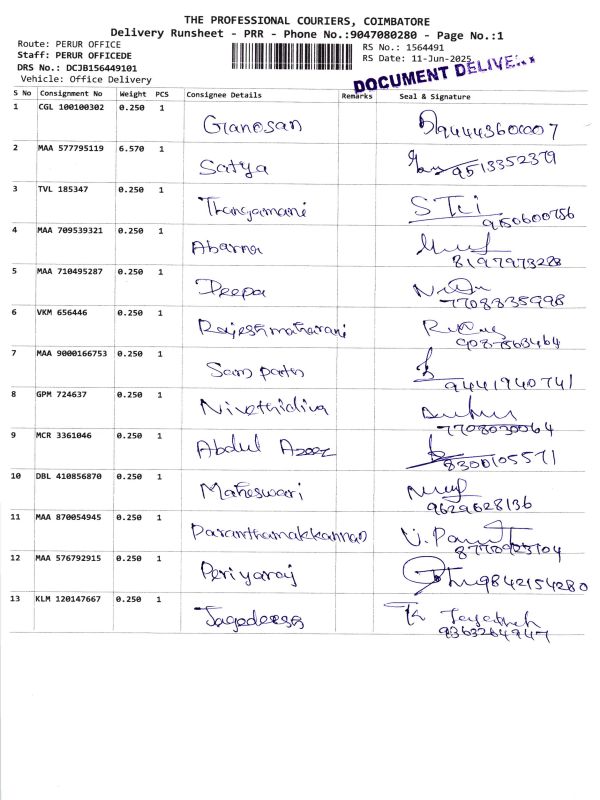 THE PROFESSIONAL COURIERS, COIMBATORE
Delivery Runsheet - PRR - Phone No.:9047080280 - Page No.:1
Route: PERUR OFFICE
RS No.: 1564491
Staff: PERUR OFFICEDE
RS Date: 11-Jun-2025
DRS No.: DCJB156449101
DOCUMENT
Vehicle: Office Delivery
S No Consignment No Weight PCS Consignee Details Remarks Seal & Signature
1 CGL 100100302 0.250 1 Ganesan
2 MAA 577795119 6.570 1 Satya 9513352379
3 TVL 185347 0.250 1 Thangamani 9150600756
4 MAA 709539321 0.250 1 Abarna 8197973288
5 MAA 710495287 0.250 1 Deepa 7708835998
6 VKM 656446 0.250 1 Rajeshmaharani
7 MAA 9000166753 0.250 1 9441940741
8 GPM 724637 0.250 1 7708030064
9 MCR 3361046 0.250 1 Abdul Azeez 8300105571
10 DBL 410856870 0.250 1 Maheswari 9629628136
11 MAA 870054945 0.250 1 Paranthamakkannan
12 MAA 576792915 0.250 1 Periyaraj 9842154280
13 KLM 120147667 0.250 1